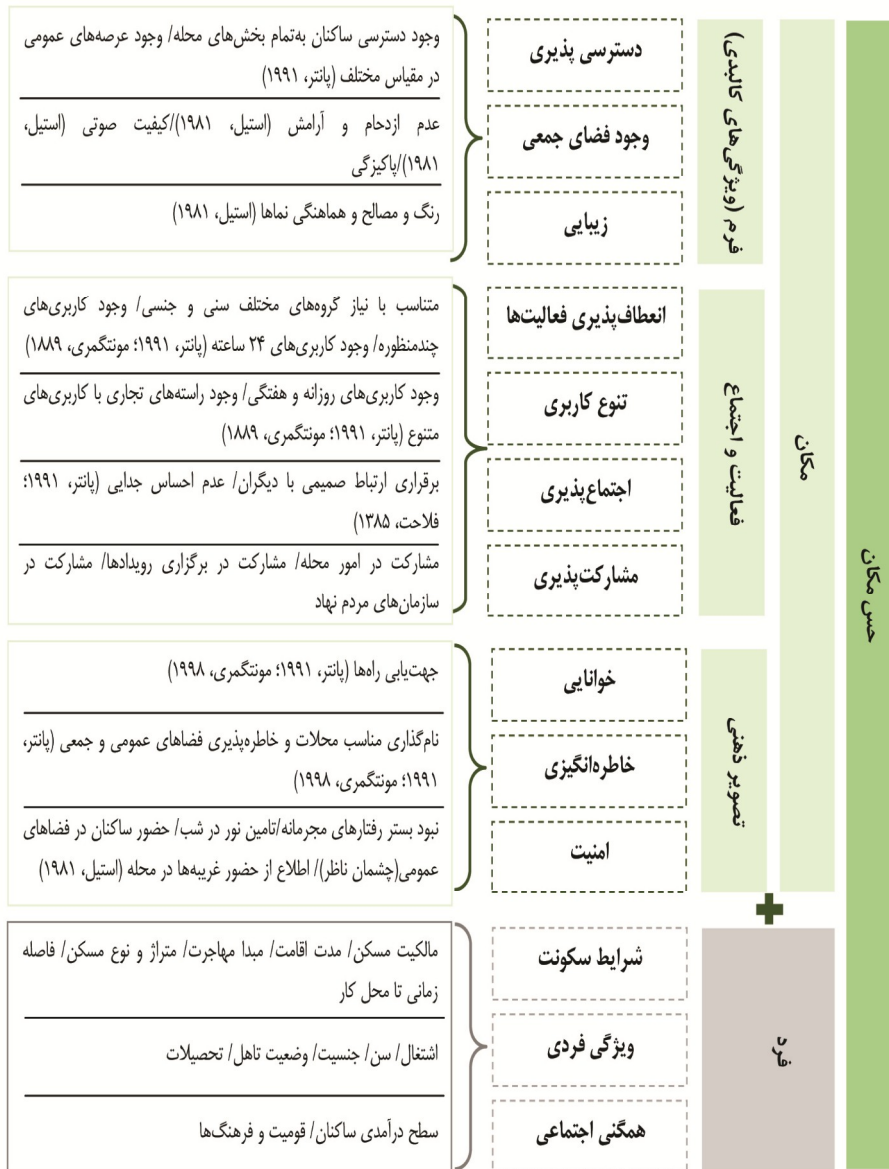 حس مکان
مکان
فرم (ویژگی‌های کالبدی)
دسترسی پذیری
وجود فضای جمعی
زیبایی
وجود دسترسی ساکنان به‌تمام بخش‌های محله/ وجود عرصه‌های عمومی
در مقیاس مختلف (پانتر، ۱۹۹۱)
عدم ازدحام و آرامش (استیل، ۱۹۸۱)/کیفیت صوتی (استیل،
۱۹۸۱)/پاکیزگی
رنگ و مصالح و هماهنگی نماها (استیل، ۱۹۸۱)
فعالیت و اجتماع
انعطاف‌پذیری فعالیت‌ها
تنوع کاربری
اجتماع‌پذیری
مشارکت‌پذیری
متناسب با نیاز گروه‌های مختلف سنی و جنسی/ وجود کاربری‌های
چندمنظوره/ وجود کاربری‌های ۲۴ ساعته (پانتر، ۱۹۹۱؛ مونتگمری، ۱۸۸۹)
وجود کاربری‌های روزانه و هفتگی/ وجود راسته‌های تجاری با کاربری‌های
متنوع (پانتر، ۱۹۹۱؛ مونتگمری، ۱۸۸۹)
برقراری ارتباط صمیمی با دیگران/ عدم احساس جدایی (پانتر، ۱۹۹۱؛
فلاحت، ۱۳۸۵)
مشارکت در امور محله/ مشارکت در برگزاری رویدادها/ مشارکت در
سازمان‌های مردم نهاد
تصویر ذهنی
خوانایی
خاطره‌انگیزی
امنیت
جهت‌یابی راه‌ها (پانتر، ۱۹۹۱؛ مونتگمری، ۱۹۹۸)
نام‌گذاری مناسب محلات و خاطره‌پذیری فضاهای عمومی و جمعی (پانتر،
۱۹۹۱؛ مونتگمری، ۱۹۹۸)
نبود بستر رفتارهای مجرمانه/تامین نور در شب/ حضور ساکنان در فضاهای
عمومی(چشمان ناظر)/ اطلاع از حضور غریبه‌ها در محله (استیل، ۱۹۸۱)
فرد
شرایط سکونت
ویژگی فردی
همگنی اجتماعی
مالکیت مسکن/ مدت اقامت/ مبدا مهاجرت/ متراژ و نوع مسکن/ فاصله
زمانی تا محل کار
اشتغال/ سن/ جنسیت/ وضعیت تاهل/ تحصیلات
سطح درآمدی ساکنان/ قومیت و فرهنگ‌ها